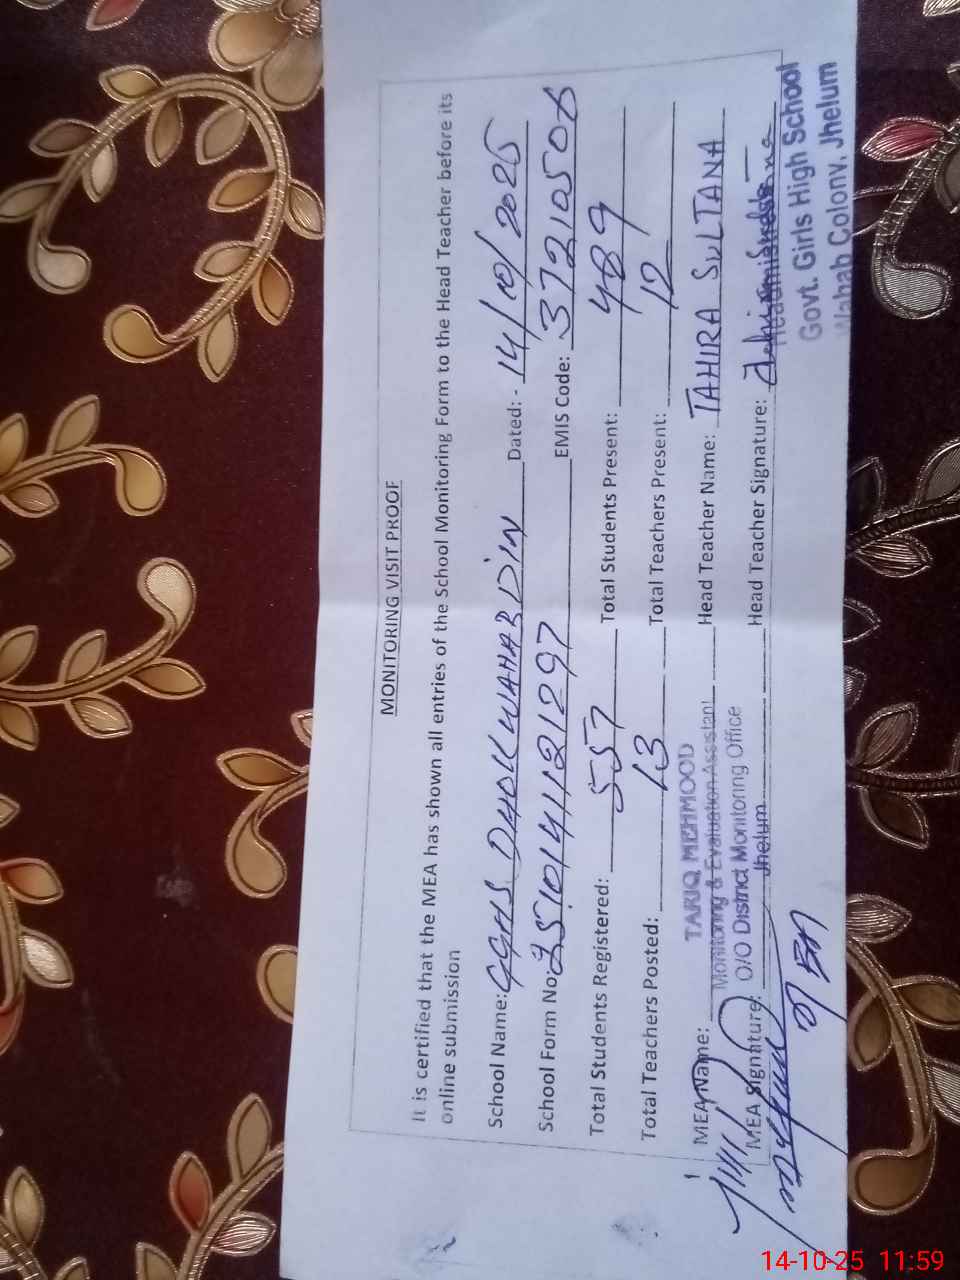 MONITORING VISIT PROOF
It is certified that the MEA has shown all entries of the School Monitoring Form to the Head Teacher before its
online submission
School Name: GGHS DHOKWAHABDIN Dated: - 14/10/2025
School Form No: 2510141121297 EMIS Code: 37210508
Total Students Registered: 557 Total Students Present: 489
Total Teachers Posted: 13 Total Teachers Present: 12
MEA Name: TARIQ MEHMOOD Head Teacher Name: TAHIRA SULTANA
Monitoring & Evaluation Assistant
MEA Signature: O/O District Monitoring Office Head Teacher Signature:
Jhelum
Headmistress
Govt. Girls High School
Wahab Colony, Jhelum
14-10-25 11:59